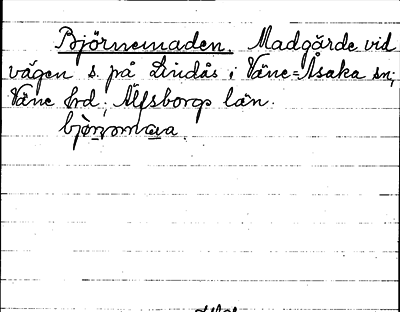 Björnemaden. Madgärde vid
vägen s. på Lindås i Väne-Åsaka sn;
Väne hd; Älfsborgs län.